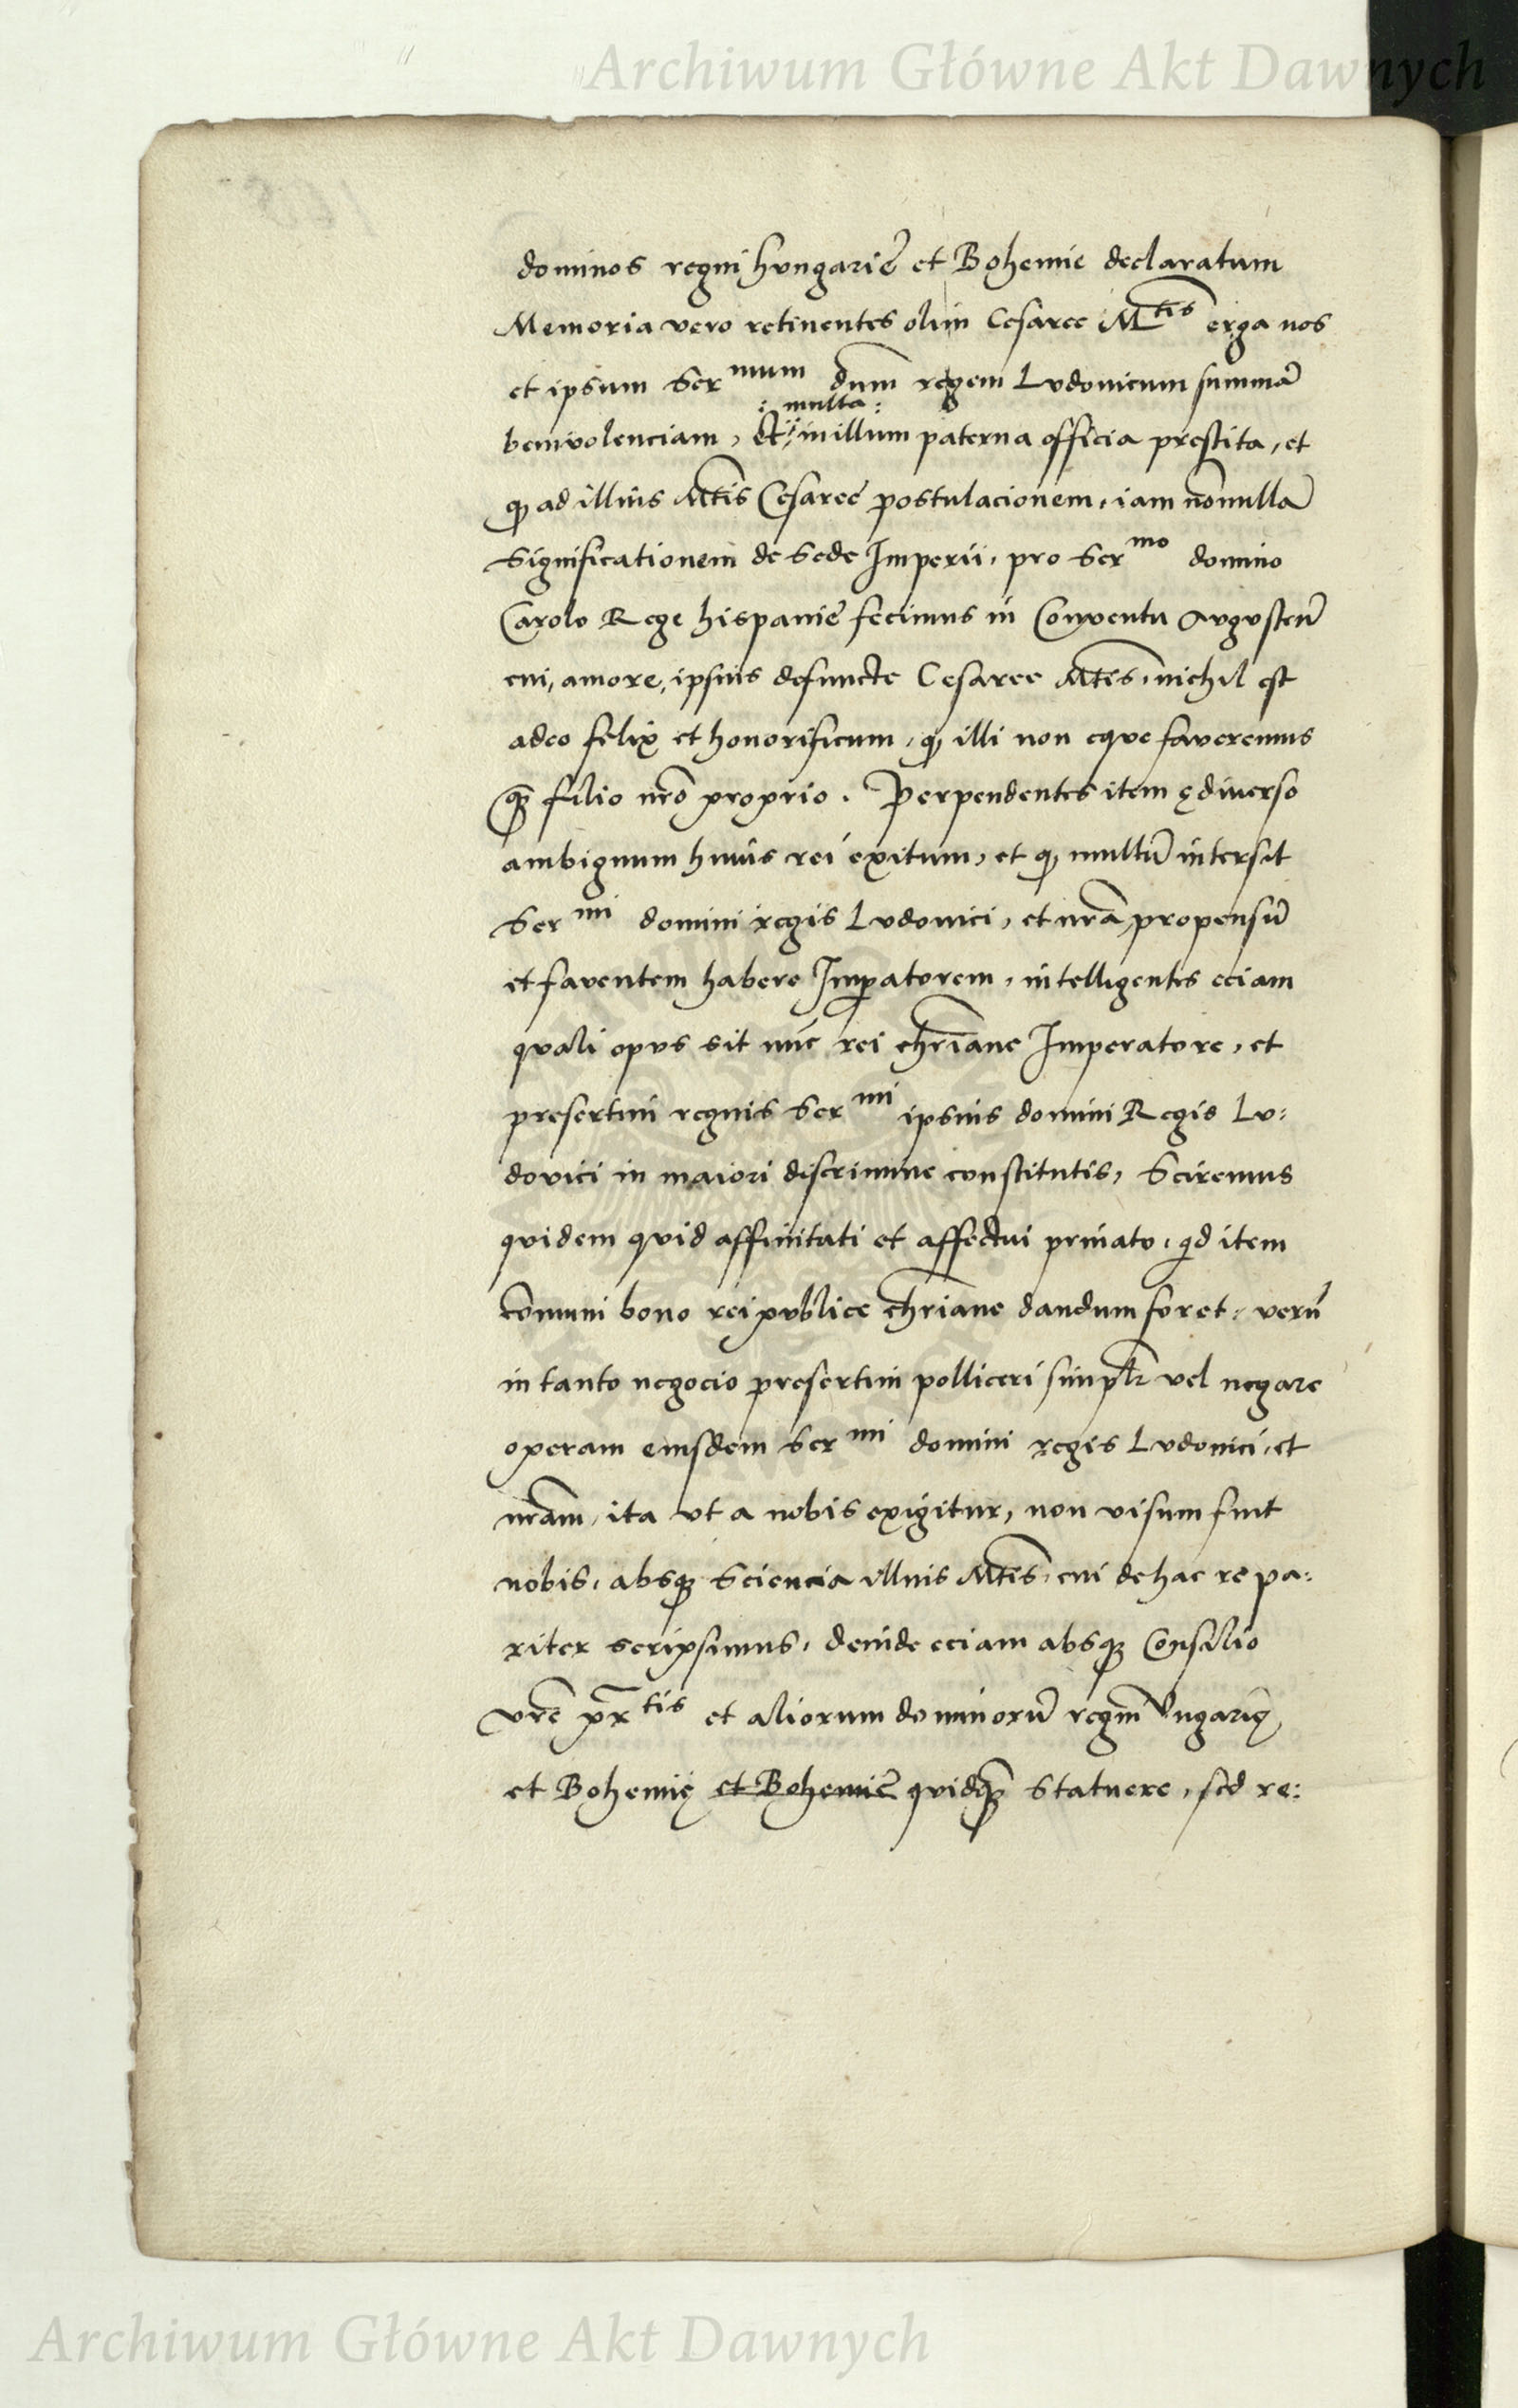 Archiwum Główne Akt Dawnych
dominos regni hungarie et Bohemie declaratum
Memoria vero retinentes olim Cesaree Mtis erga nos
et ipsum Sermum dum regem Lvdouicum summā
: multa :
beniuolenciam, et in illum paterna officia prestita, et
qz ad illius Mtis Cesaree postulacionem, iam nōnullā
Significationem de Sede Imperii, pro Sermo domino
Carolo Rege hispanie fecimus in Conventu Avgvsteñ
cui, amore, ipsius defuncte Cesaree Mtis, nichil est
adeo felix et honorificum, qz illi non eque faveremus
qz filio nrō proprio. Perpendentes item ę diuerso
ambiguum huius rei exitum, et qz multū intersit
Sermi domini regis Lvdouici, et nrā propensū
et faventem habere Imperatorem, intelligentes eciam
quali opvs sit nūc rei chriane Imperatore, et
presertim regnis Sermi ipsius domini Regis Lv:
dovici in maiori discrimine constitutis, Sciremus
quidem quid affinitati et affectui priuato, qd item
cōmuni bono reipvblice chriane dandum foret, verū
in tanto negocio presertim polliceri simplr vel negare
operam eiusdem Sermi domini regis Lvdouici, et
nram, ita vt a nobis exigitur, non visum fuit
nobis, absqz Sciencia illius Mtis, cui de hac re pa:
riter scripsimus, deinde eciam absqz Consilio
vrē prtis et aliorum dominorū regni Vngarię
et Bohemię et Bohemie quidqz Statuere, sed re:
Archiwum Główne Akt Dawnych